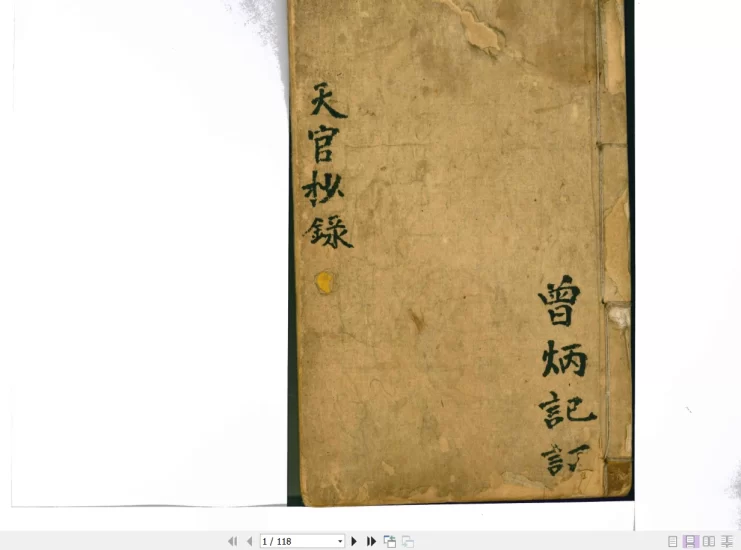 天官抄錄
曾炳記訂
1 / 118